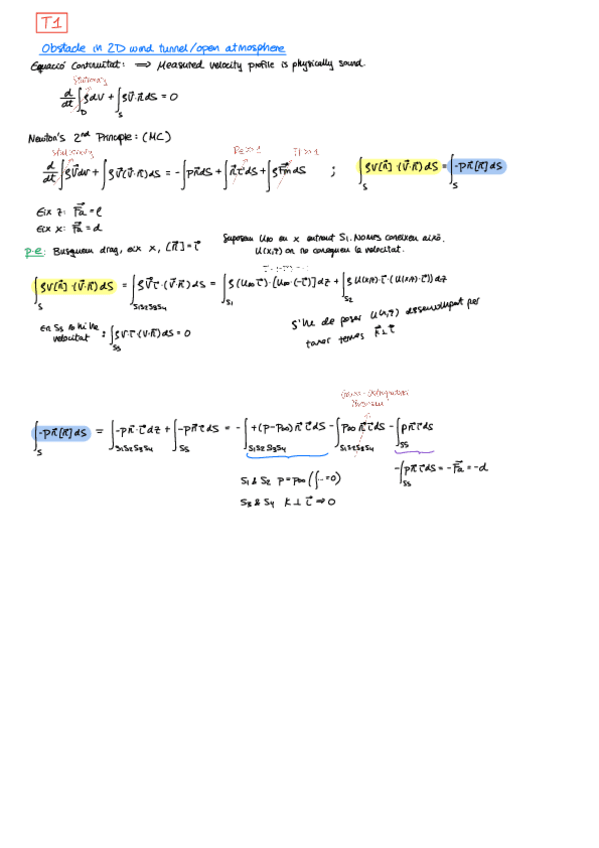 T1
Obstacle in 2D wind tunnel/open atmosphere
Equació Continuitat: ⟹ Measured velocity profile is physically sound.
Stationary
d/dt ∫_D ρdV + ∫_S ρV⃗·n⃗ dS = 0
Newton's 2nd Principle: (MC)
Stationary Re>>1 Fr>>1
d/dt ∫_D ρV⃗dV + ∫_S ρV⃗(V⃗·n⃗)dS = -∫pn⃗dS + ∫n⃗τ'dS + ∫ρF⃗m dS ; ∫_S ρV[n⃗]·(V⃗·n⃗)dS = ∫_S -pn⃗[n⃗]dS
Eix z: F⃗a = l
Eix x: F⃗a = d
p.e: Busquem drag, eix x, [n⃗] = i⃗
Suposem U∞ en x entrant S1. Només coneixem això.
U(x,z) on no coneguem la velocitat.
∫_S ρV[n⃗]·(V⃗·n⃗)dS = ∫_S1S2S3S4 ρV⃗i⃗·(V⃗·n⃗)dS = ∫_S1 ρ(U∞ i⃗)·[U∞·(-i⃗)]dz + ∫_S2 ρU(x,z)·i⃗·(U(x,z)·i⃗)dz
En S5 no hi ha velocitat : ∫_S5 ρV·i·(V·n⃗)dS = 0
S'ha de posar U(x,z) desenvolupat per
tenir termes k⃗⊥i⃗
∫_S -pn⃗[n⃗]dS = ∫_S1S2S3S4 -pn⃗·i⃗dz + ∫_S5 -pn⃗i⃗dS = -∫_S1S2S3S4 +(p-p∞)n⃗i⃗dS - ∫_S1S2S3S4 p∞n⃗i⃗dS - ∫_S5 pn⃗i⃗dS
S1 & S2 p = p∞ (∫... = 0)
S3 & S4 k⊥i⃗ ⇒ 0
-∫_S5 pn⃗i⃗dS = -F⃗a = -d